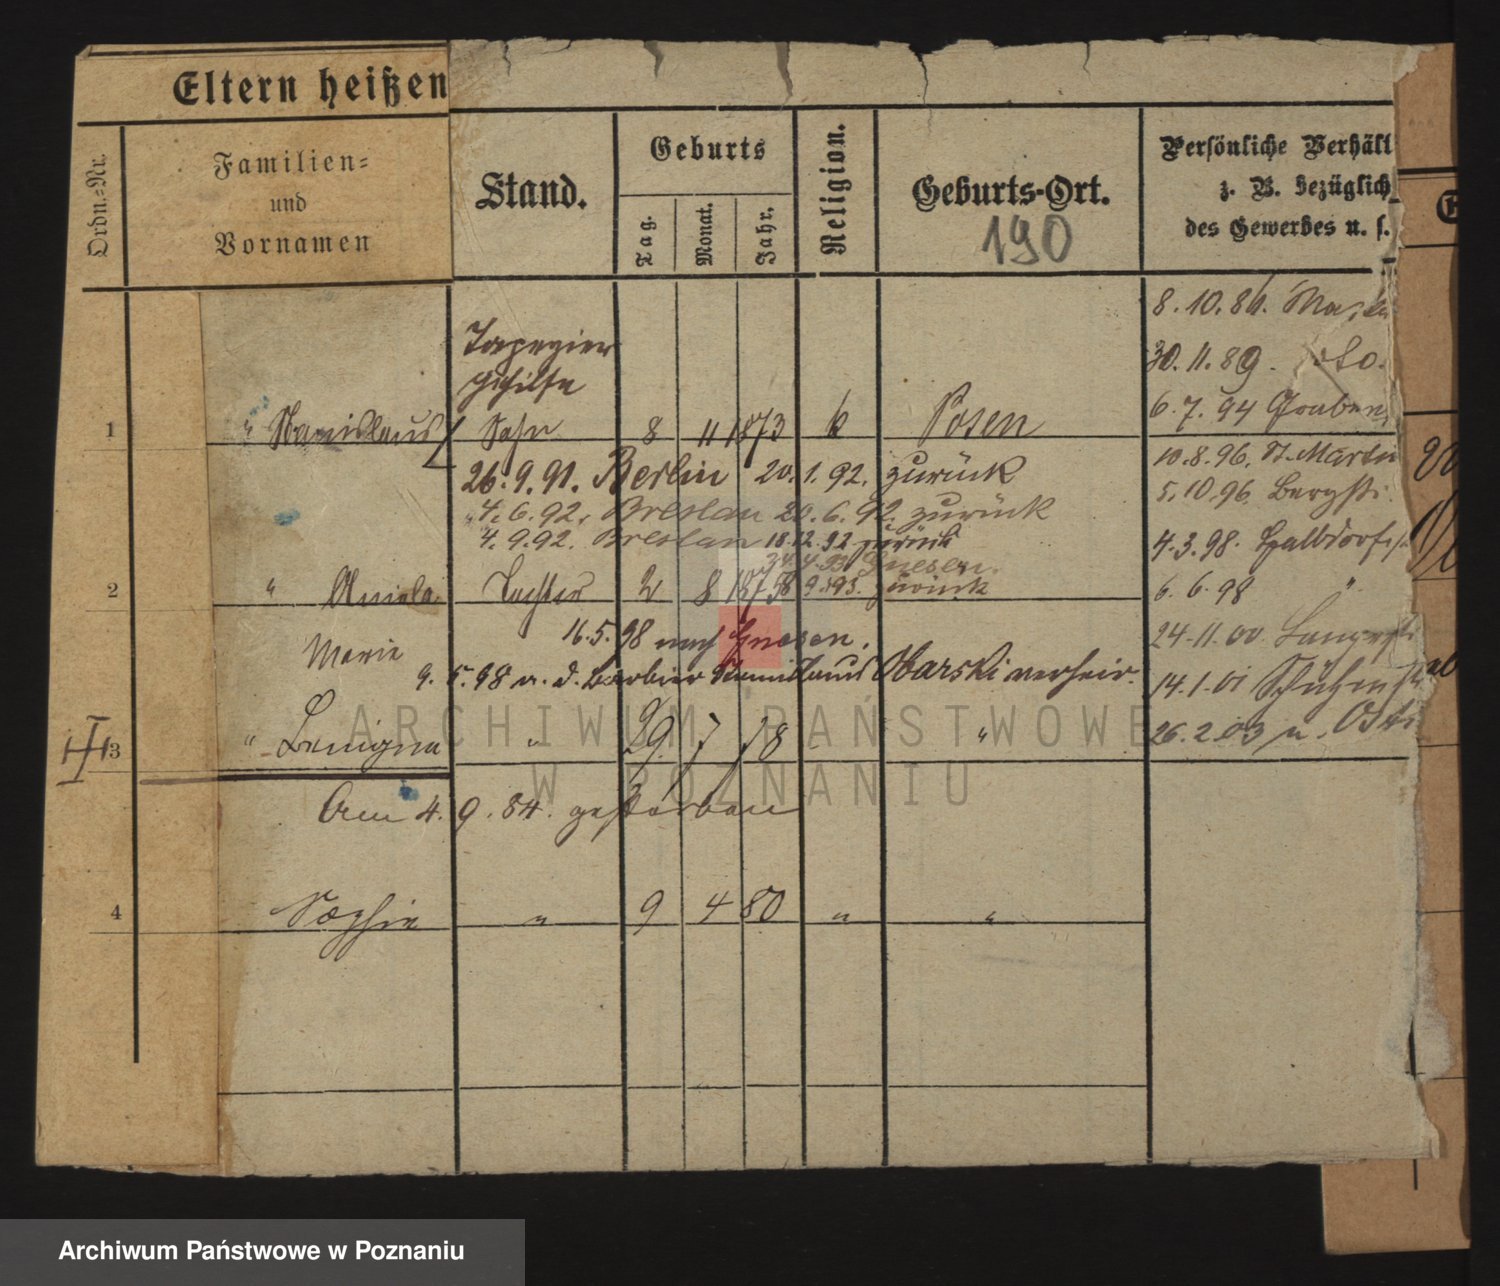 Eltern heißen
Ordn.-Nr.
Familien-
und
Vornamen
Stand.
Geburts
Tag.
Monat.
Jahr.
Religion.
Geburts-Ort.
190
Persönliche Verhäl
z. B. bezüglich
des Gewerbes u. s.
8.10.86.
30.11.89. do.
6.7.94 Graben
Tapezier
gehilfe
1 " Stanislaus Sohn 8 11 1873 k Posen
10.8.96. St. Martin
26.9.91. Berlin 20.1.92. zurück
5.10.96 Bergstr.
4.6.92. Breslau 20.6.92. zurück
4.9.92. Breslau 18.12.92 zurück
4.3.98. Halbdorfstr
24.4.93 Gnesen.
zurück
2 " Aniela Tochter 2 8 1875
6.6.98 "
16.5.98 nach Gnesen.
24.11.00 Langestr
Marie
9.5.98 m. d. Barbier Stanislaus Obarski verheir.
14.1.01 Schützenstr
3 " Benigna " 29 7 78 " "
26.2.03 n.
Am 4.9.84. gestorben
4 Sophie " 9 4 80 " "
ARCHIWUM PAŃSTWOWE
W POZNANIU
Archiwum Państwowe w Poznaniu